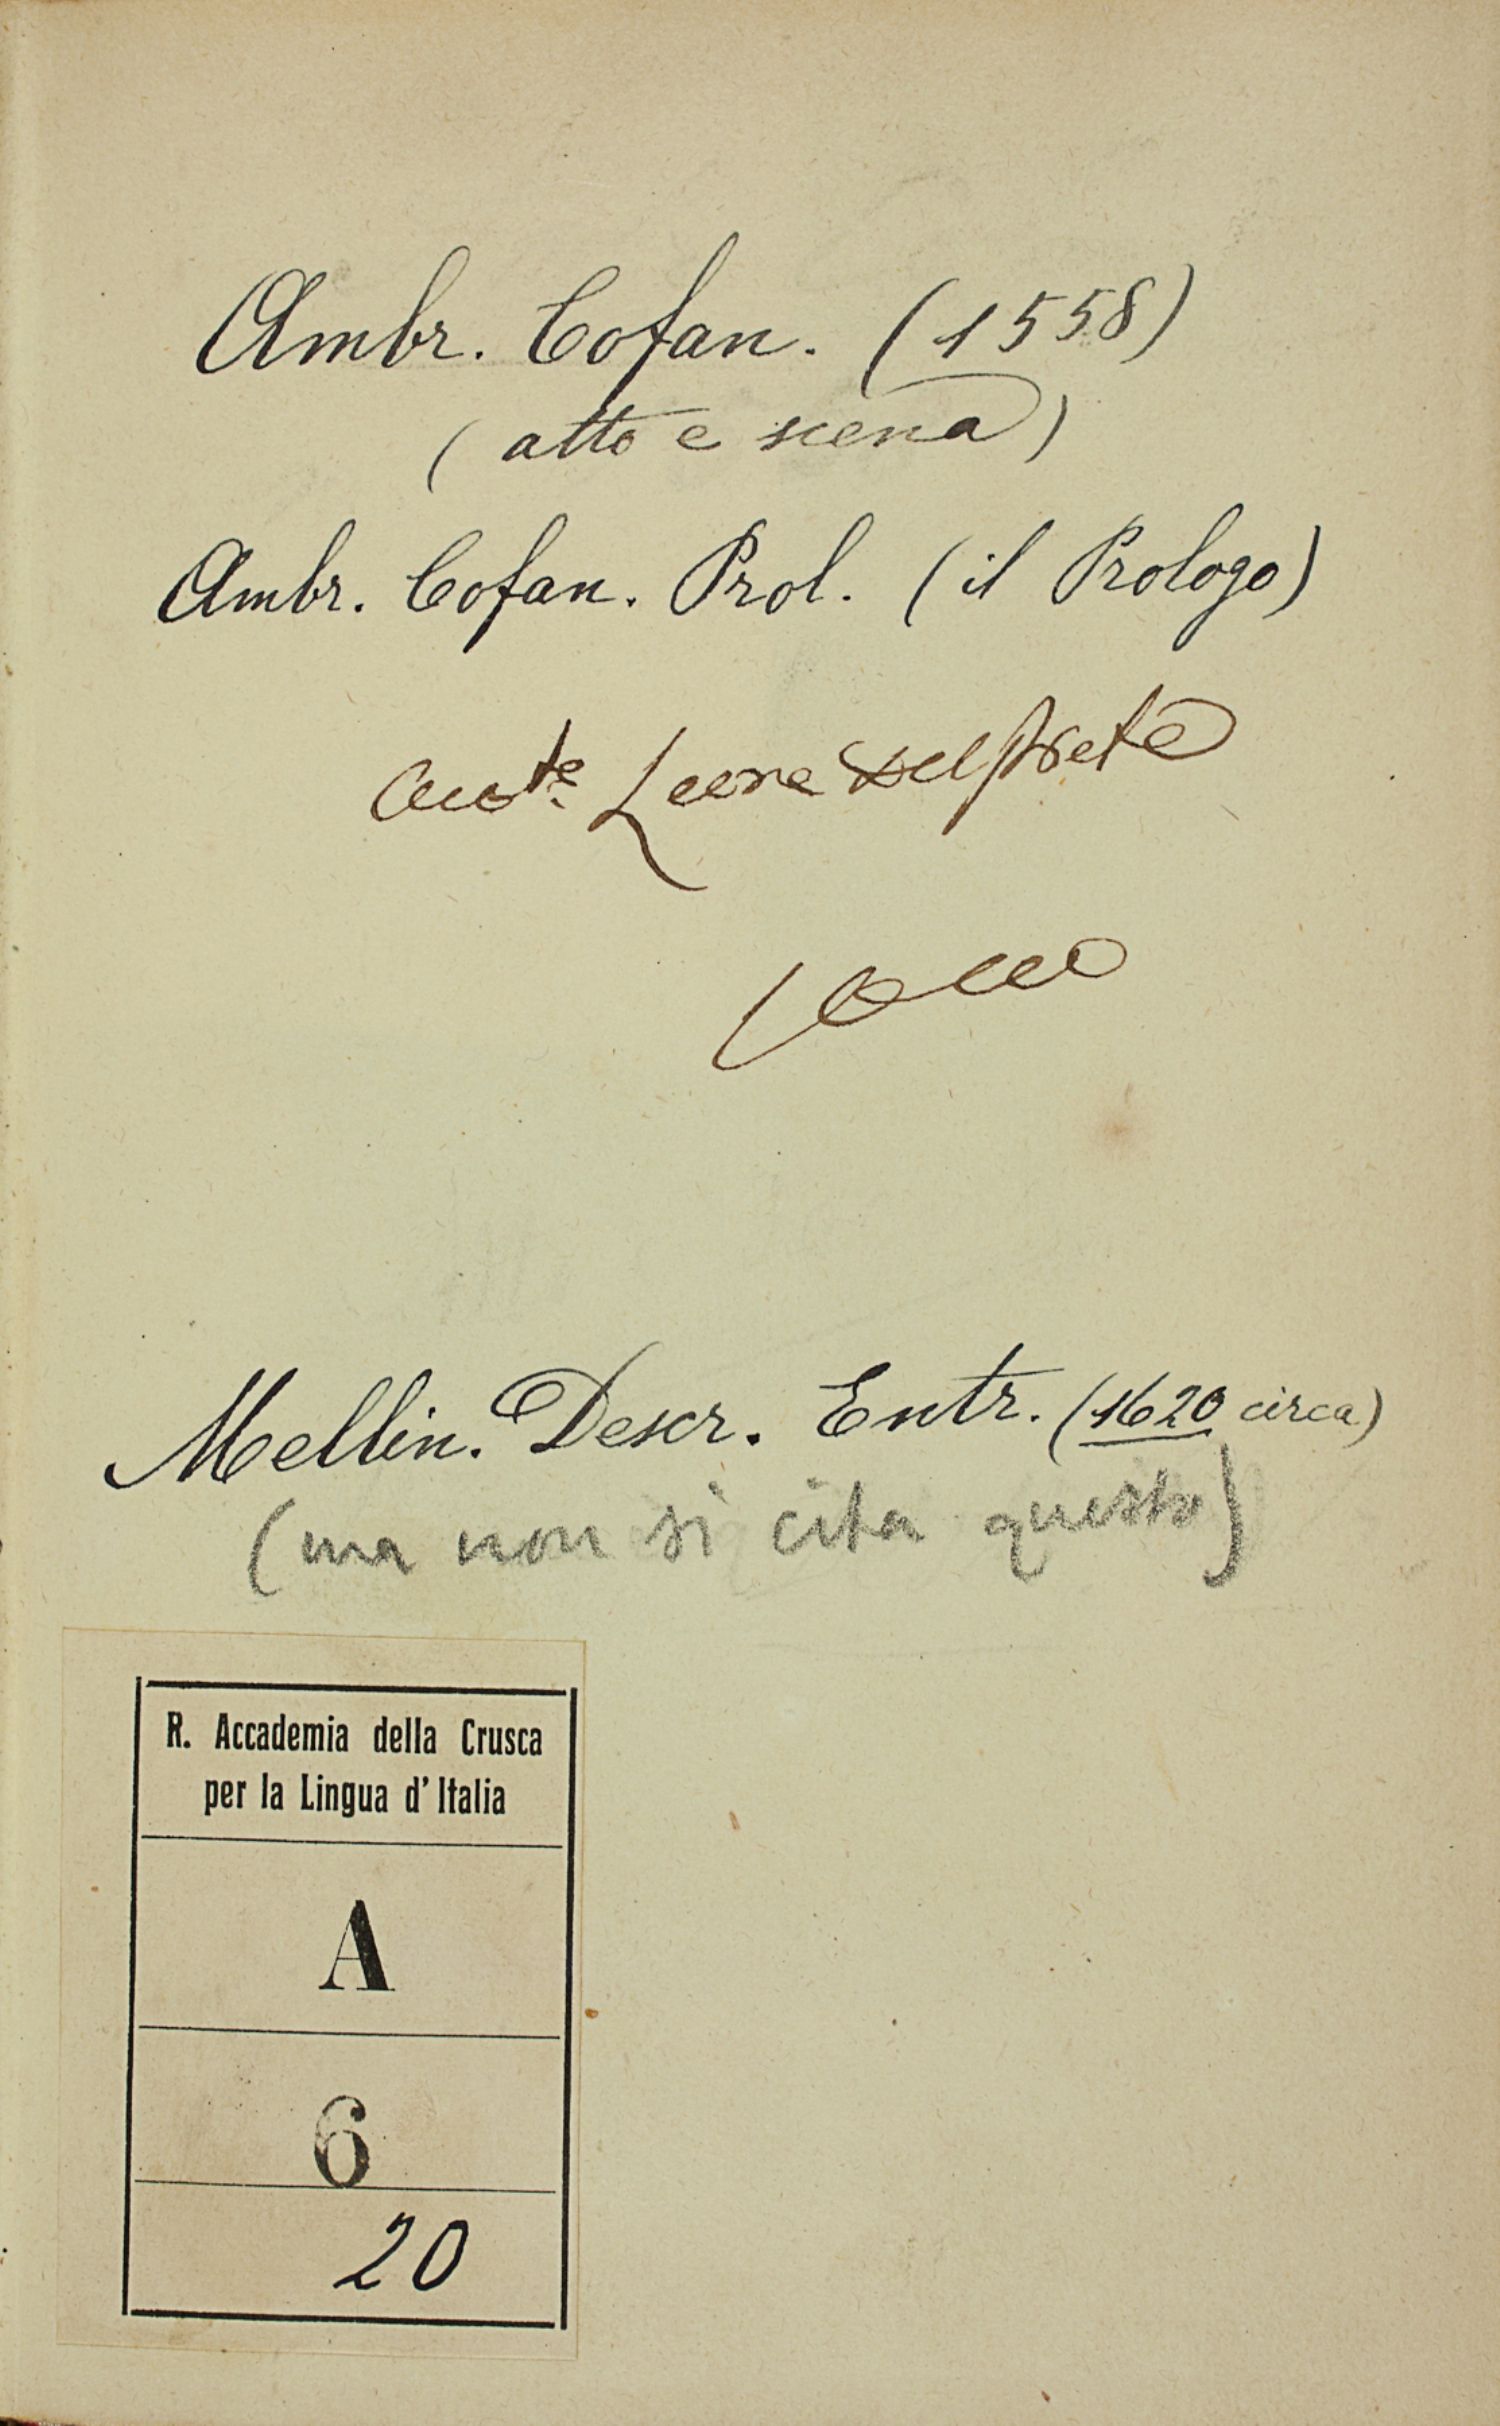 Ambr. Cofan. (1558)
(atto e scena)
Ambr. Cofan. Prol. (il Prologo)
Leone Del Prete
Mellin. Descr. Entr. (1620 circa)
(ma non si cita questo)
R. Accademia della Crusca
per la Lingua d'Italia
A
6
20